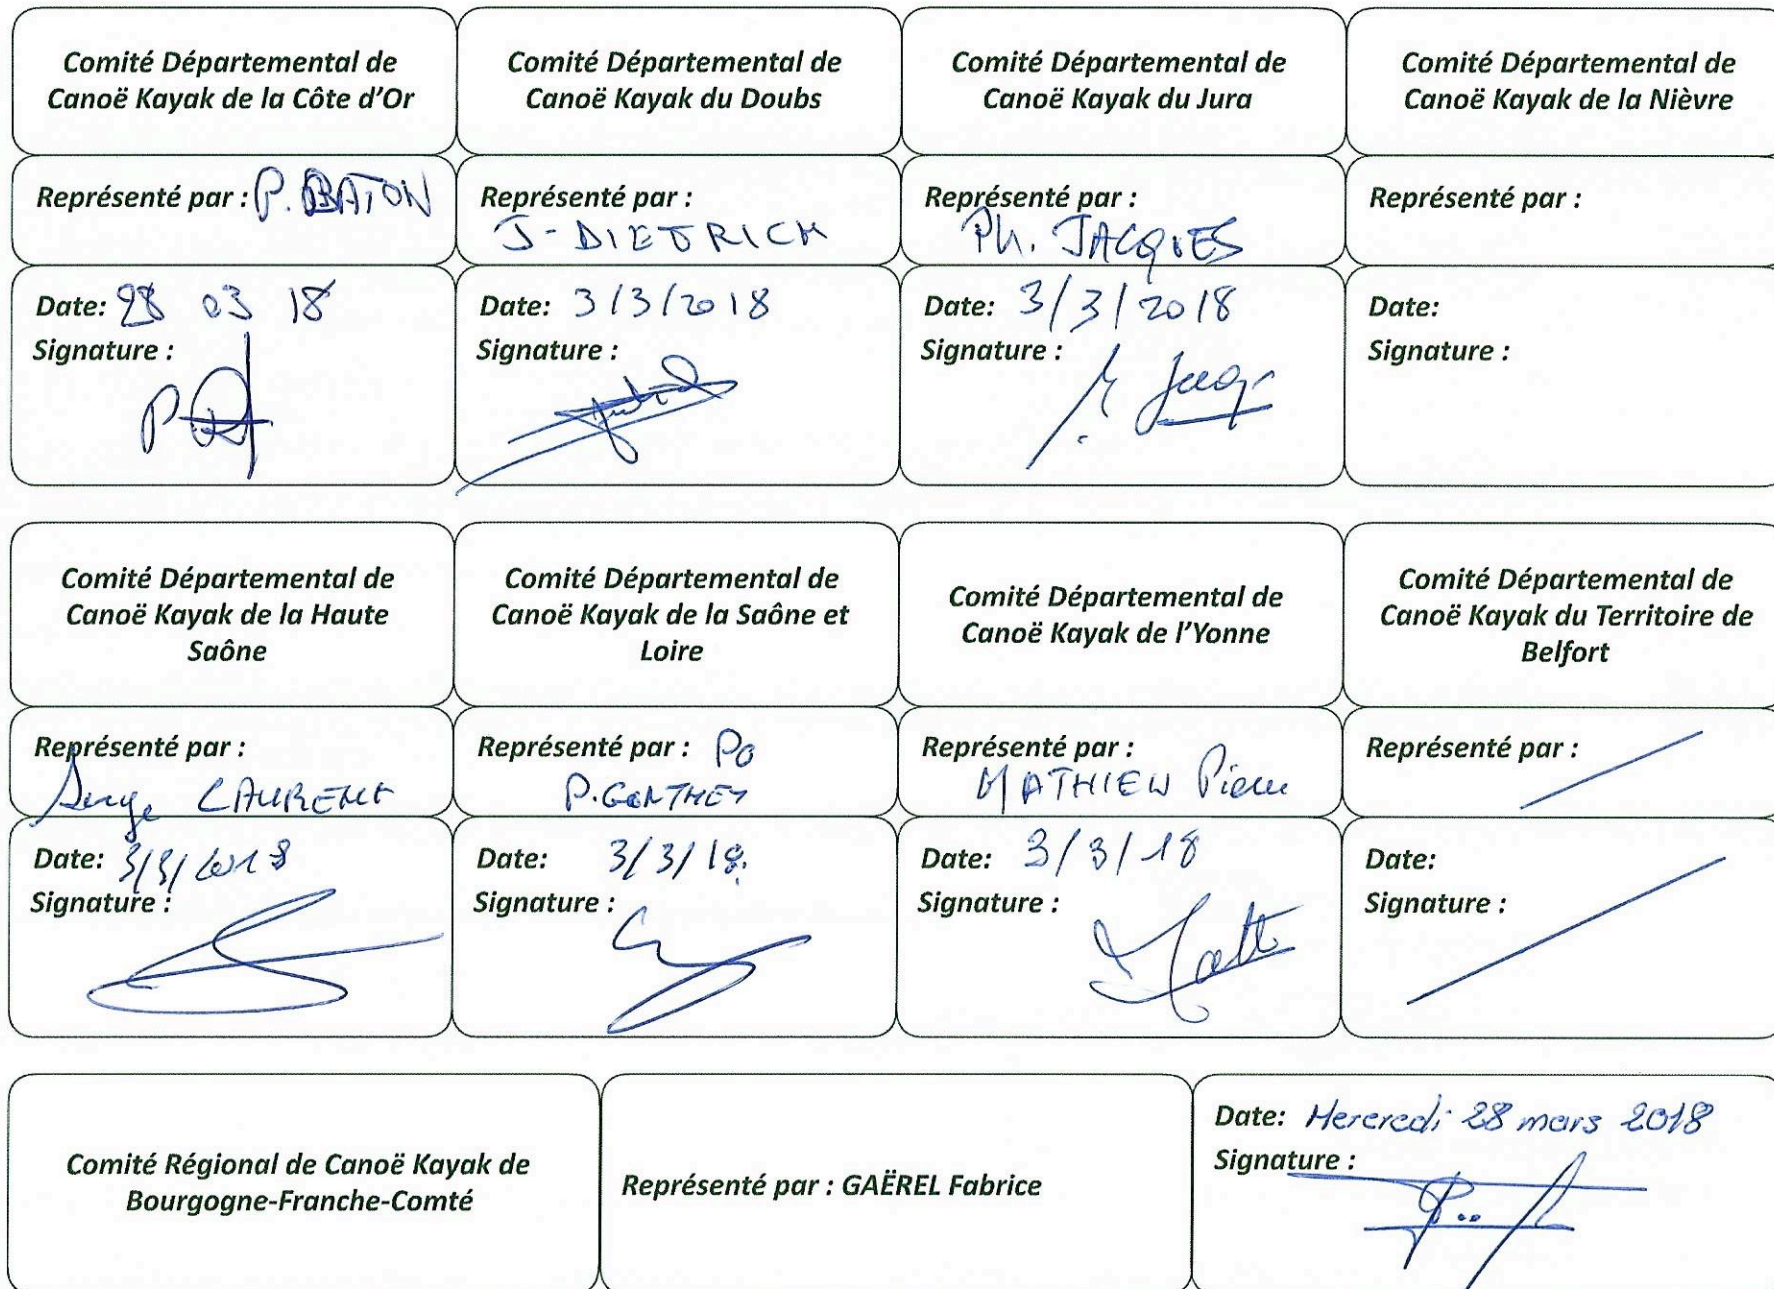 Comité Départemental de
Canoë Kayak de la Côte d'Or
Comité Départemental de
Canoë Kayak du Doubs
Comité Départemental de
Canoë Kayak du Jura
Comité Départemental de
Canoë Kayak de la Nièvre
Représenté par : P. BATON
Représenté par :
J- DIETRICH
Représenté par :
Ph. JACQUES
Représenté par :
Date: 28 03 18
Signature :
Date: 3/3/2018
Signature :
Date: 3/3/2018
Signature :
Date:
Signature :
Comité Départemental de
Canoë Kayak de la Haute
Saône
Comité Départemental de
Canoë Kayak de la Saône et
Loire
Comité Départemental de
Canoë Kayak de l'Yonne
Comité Départemental de
Canoë Kayak du Territoire de
Belfort
Représenté par :
Serge LAURENT
Représenté par : PO
P. GONTHEY
Représenté par :
MATHIEU Pierre
Représenté par :
Date: 3/3/2018
Signature :
Date: 3/3/18.
Signature :
Date: 3/3/18
Signature :
Date:
Signature :
Comité Régional de Canoë Kayak de
Bourgogne-Franche-Comté
Représenté par : GAËREL Fabrice
Date: Mercredi 28 mars 2018
Signature :